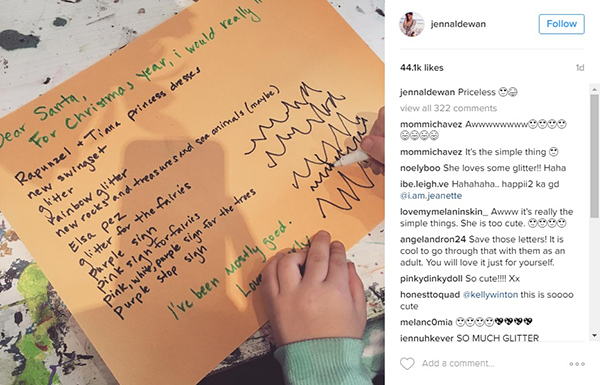 Dear Santa,
For Christmas year, i would really li
Rapunzel + Tiana Princess dresses
new swingset
glitter
rainbow glitter
new rocks and treasures and sea animals (maybe)
Elsa pez
glitter for the fairies
purple sign
pink sign for fairies
pink, white, purple sign for the trees
purple stop sign
I've been mostly good.
Lov
jennaldewan
Follow
44.1k likes
1d
jennaldewan Priceless 🙄😂
view all 322 comments
mommichavez Awwwwwwwww🙄🙄🙄🙄
😂😂😂😂
mommichavez It's the simple thing 🙄
noelyboo She loves some glitter!! Haha
ibe.leigh.ve Hahahaha.. happii2 ka gd
@i.am.jeanette
lovemymelaninskin_ Awww it's really the
simple things. She is too cute. 🙄🙄🙄🙄
angelandron24 Save those letters! It is
cool to go through that with them as an
adult. You will love it just for yourself.
pinkydinkydoll So cute!!!! Xx
honesttoquad @kellywinton this is soooo
cute
melanc0mia 🙄🙄🙄🙄💖💖💖💖
jennuhkever SO MUCH GLITTER
Add a comment...